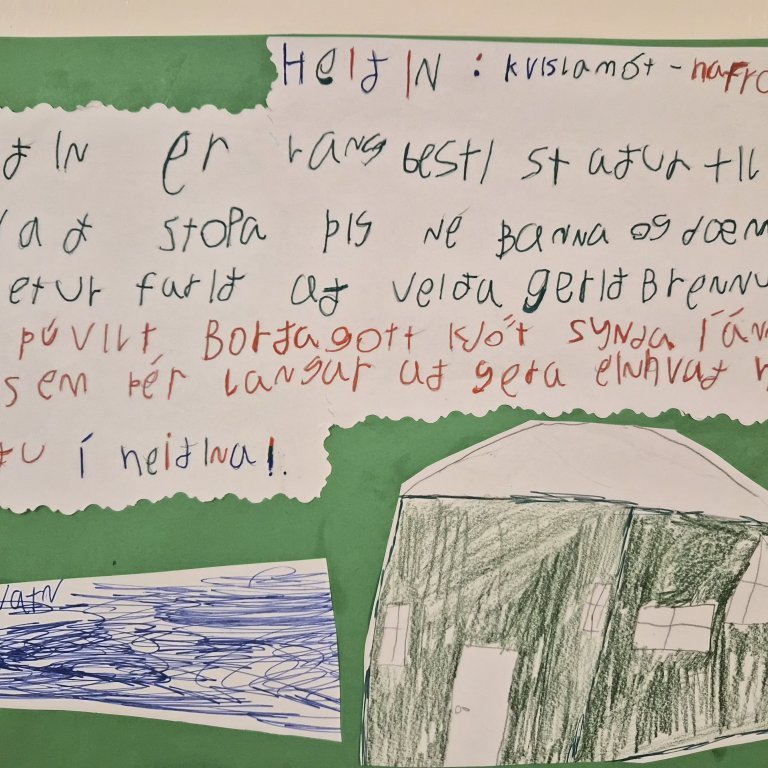 HeiðIN : kvislamót - nafro
ðIN er langbesti staður til
að stoPa þig né BaNNa og dæm
etur farið að veiða gerið BreNNu
þú vilt Borða gott kjöt syNda í áN
sem þér langar að gera eiNhvað
ðu í heiðiNa!.
vatN